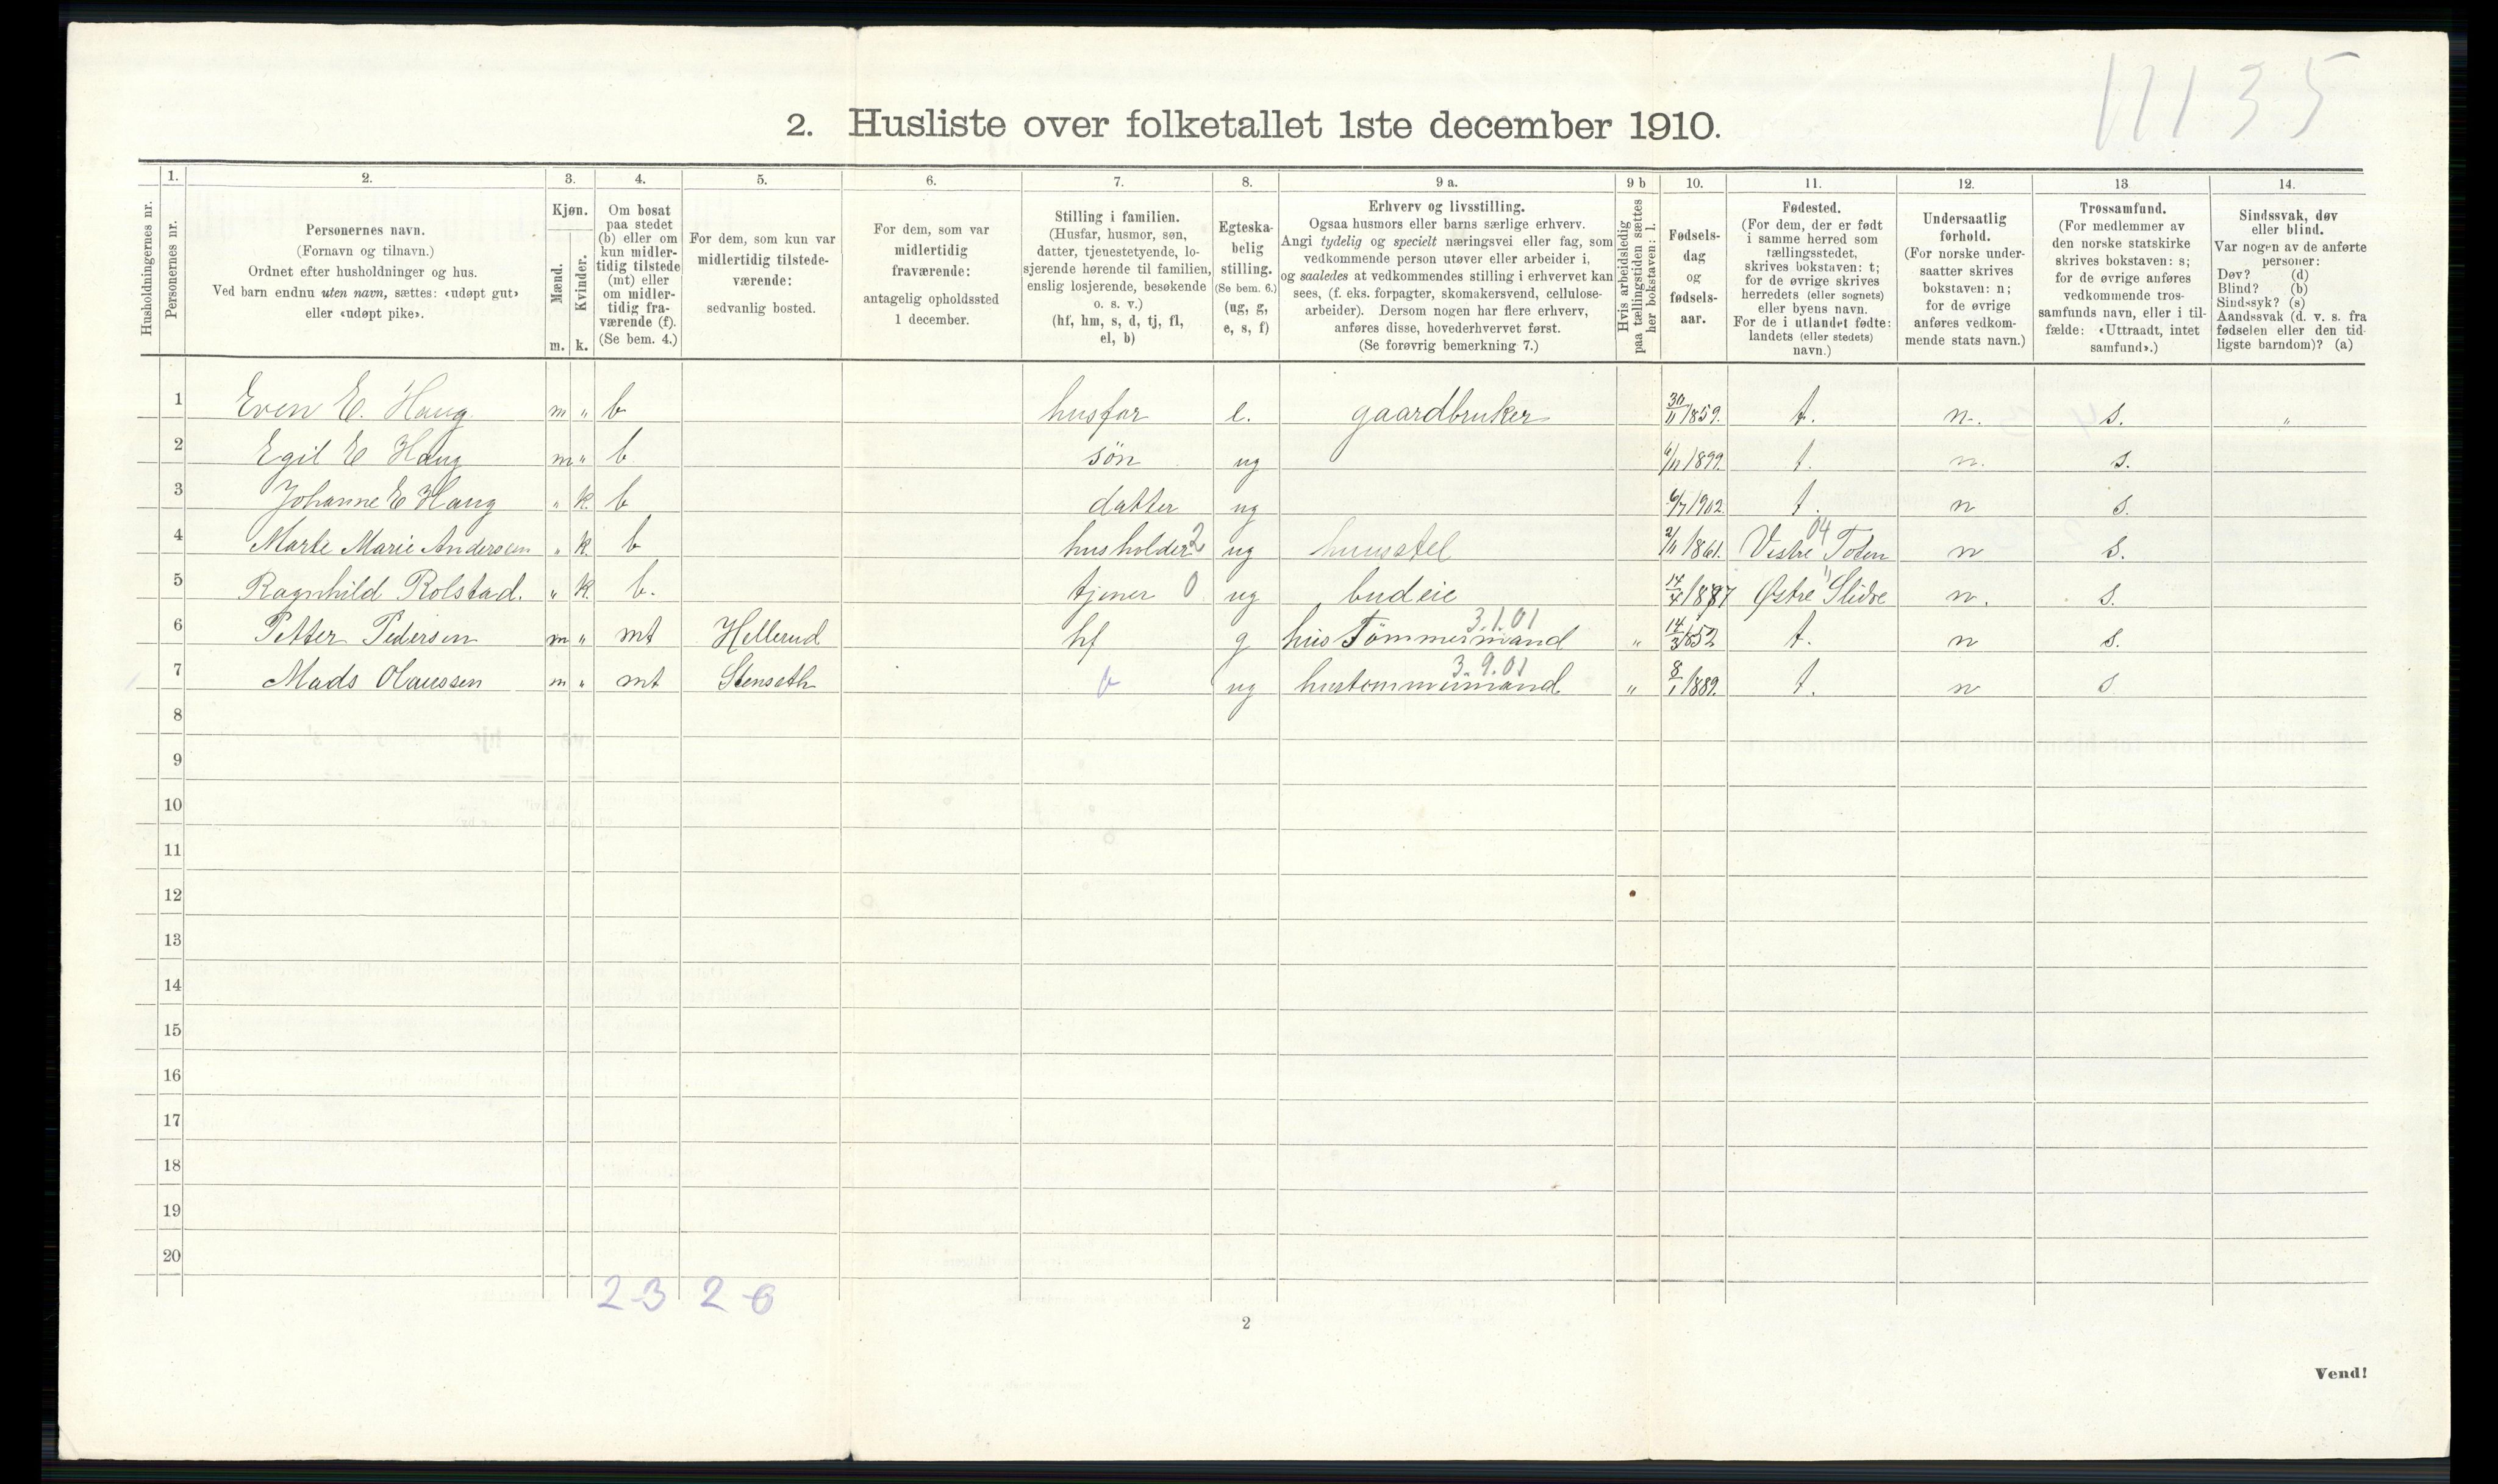 11135
2. Husliste over folketallet 1ste december 1910.
Husholdningernes nr.
1. Personernes nr.
2. Personernes navn.
(Fornavn og tilnavn.)
Ordnet efter husholdninger og hus.
Ved barn endnu uten navn, sættes: «udøpt gut»
eller «udøpt pike».
3. Kjøn.
Mænd. Kvinder.
m. k.
4. Om bosat
paa stedet
(b) eller om
kun midler-
tidig tilstede
(mt) eller
om midler-
tidig fra-
værende (f).
(Se bem. 4.)
5. For dem, som kun var
midlertidig tilstede-
værende:
sedvanlig bosted.
6. For dem, som var
midlertidig
fraværende:
antagelig opholdssted
1 december.
7. Stilling i familien.
(Husfar, husmor, søn,
datter, tjenestetyende, lo-
sjerende hørende til familien,
enslig losjerende, besøkende
o. s. v.)
(hf, hm, s, d, tj, fl,
el, b)
8. Egteska-
belig
stilling.
(Se bem. 6.)
(ug, g,
e, s, f)
9 a. Erhverv og livsstilling.
Ogsaa husmors eller barns særlige erhverv.
Angi tydelig og specielt næringsvei eller fag, som
vedkommende person utøver eller arbeider i,
og saaledes at vedkommendes stilling i erhvervet kan
sees, (f. eks. forpagter, skomakersvend, cellulose-
arbeider). Dersom nogen har flere erhverv,
anføres disse, hovederhvervet først.
(Se forøvrig bemerkning 7.)
9 b Hvis arbeidsledig
paa tællingstiden sættes
her bokstaven: l.
10. Fødsels-
dag
og
fødsels-
aar.
11. Fødested.
(For dem, der er født
i samme herred som
tællingsstedet,
skrives bokstaven: t;
for de øvrige skrives
herredets (eller sognets)
eller byens navn.
For de i utlandet fødte:
landets (eller stedets)
navn.)
12. Undersaatlig
forhold.
(For norske under-
saatter skrives
bokstaven: n;
for de øvrige
anføres vedkom-
mende stats navn.)
13 Trossamfund.
(For medlemmer av
den norske statskirke
skrives bokstaven: s;
for de øvrige anføres
vedkommende tros-
samfunds navn, eller i til-
fælde: «Uttraadt, intet
samfund».)
14. Sindssvak, døv
eller blind.
Var nogen av de anførte
personer:
Døv? (d)
Blind? (b)
Sindssyk? (s)
Aandssvak (d. v. s. fra
fødselen eller den tid-
ligste barndom)? (a)
1 Even E. Haug m " b husfar e. gaardbruker 30/11 1859. t. n. s. "
2 Egil E Haug m " b søn ug 1899. t. n. s.
3 Johanne E Haug " k. b datter ug 6/7 1902. t. n s.
04
4 Marte Marie Andersen " k. b husholder 2 ug huusstel 2/11 1861. Vestre Toten n s.
5 Ragnhild Rolstad. " k. b. tjener 0 ug budeie 14/4 1887 Østre Slidre n. s.
3.1.01
6 Petter Pedersen m " mt Hellerud hf g hus Tømmermand " 14/3 1852 t. n s.
3.9.01
7 Mads Olaussen m " mt Stenseth b ug hustommermand " 8/1 1889. t. n s
8
9
10
11
12
13
14
15
16
17
18
19
20
2-3 2-0
2
Vend!